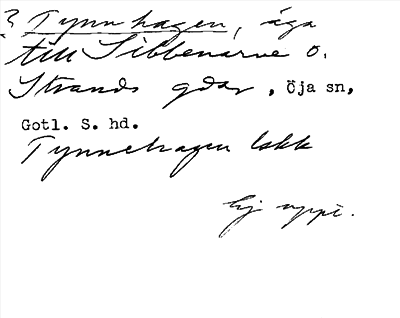 ? Tynnhagen, äga
till Sibbenarve o.
Strands gdar, Öja sn,
Gotl. S. hd.
Tynnehagen lskk
Ej uppt.